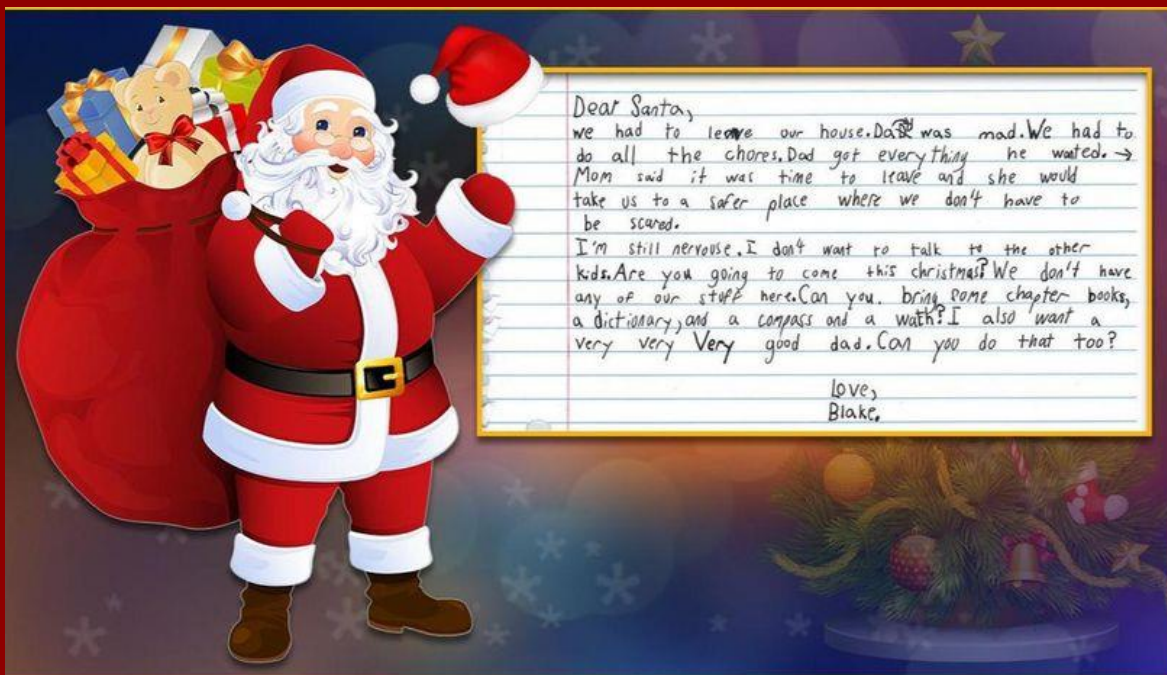 Dear Santa,
we had to leave our house. Dad was mad. We had to
do all the chores. Dad got everything he wanted. →
Mom said it was time to leave and she would
take us to a safer place where we don't have to
be scared.
I'm still nervouse. I don't want to talk to the other
kids. Are you going to come this christmas? We don't have
any of our stuff here. Can you. bring some chapter books,
a dictionary, and a compass and a wath? I also want a
very very very good dad. Can you do that too?
Love,
Blake.